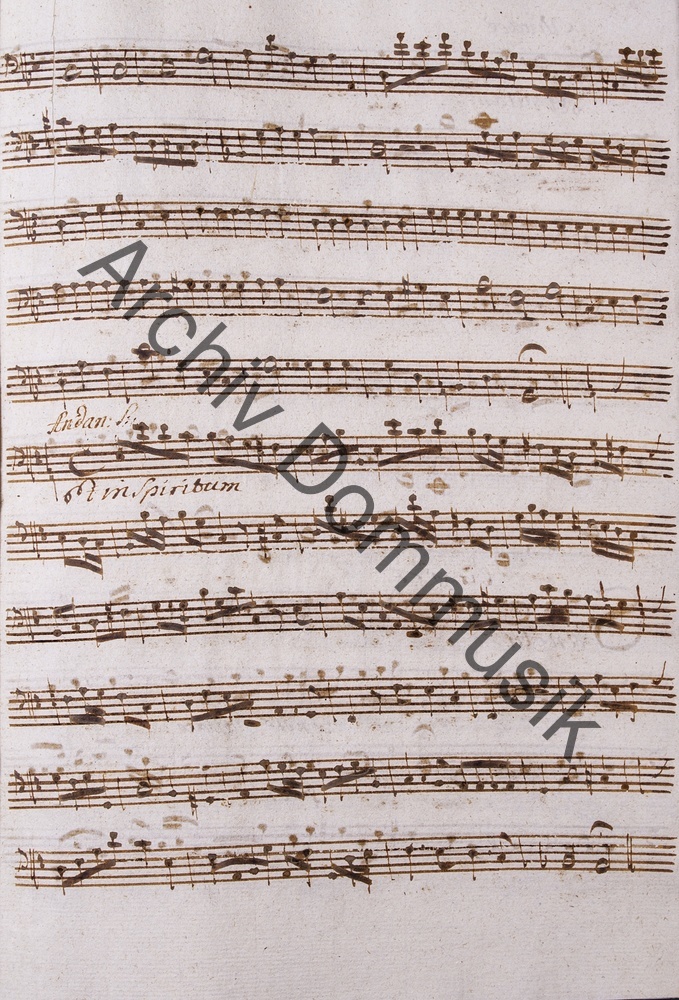 Andan:
Et in Spiritum
Archiv Dommusik